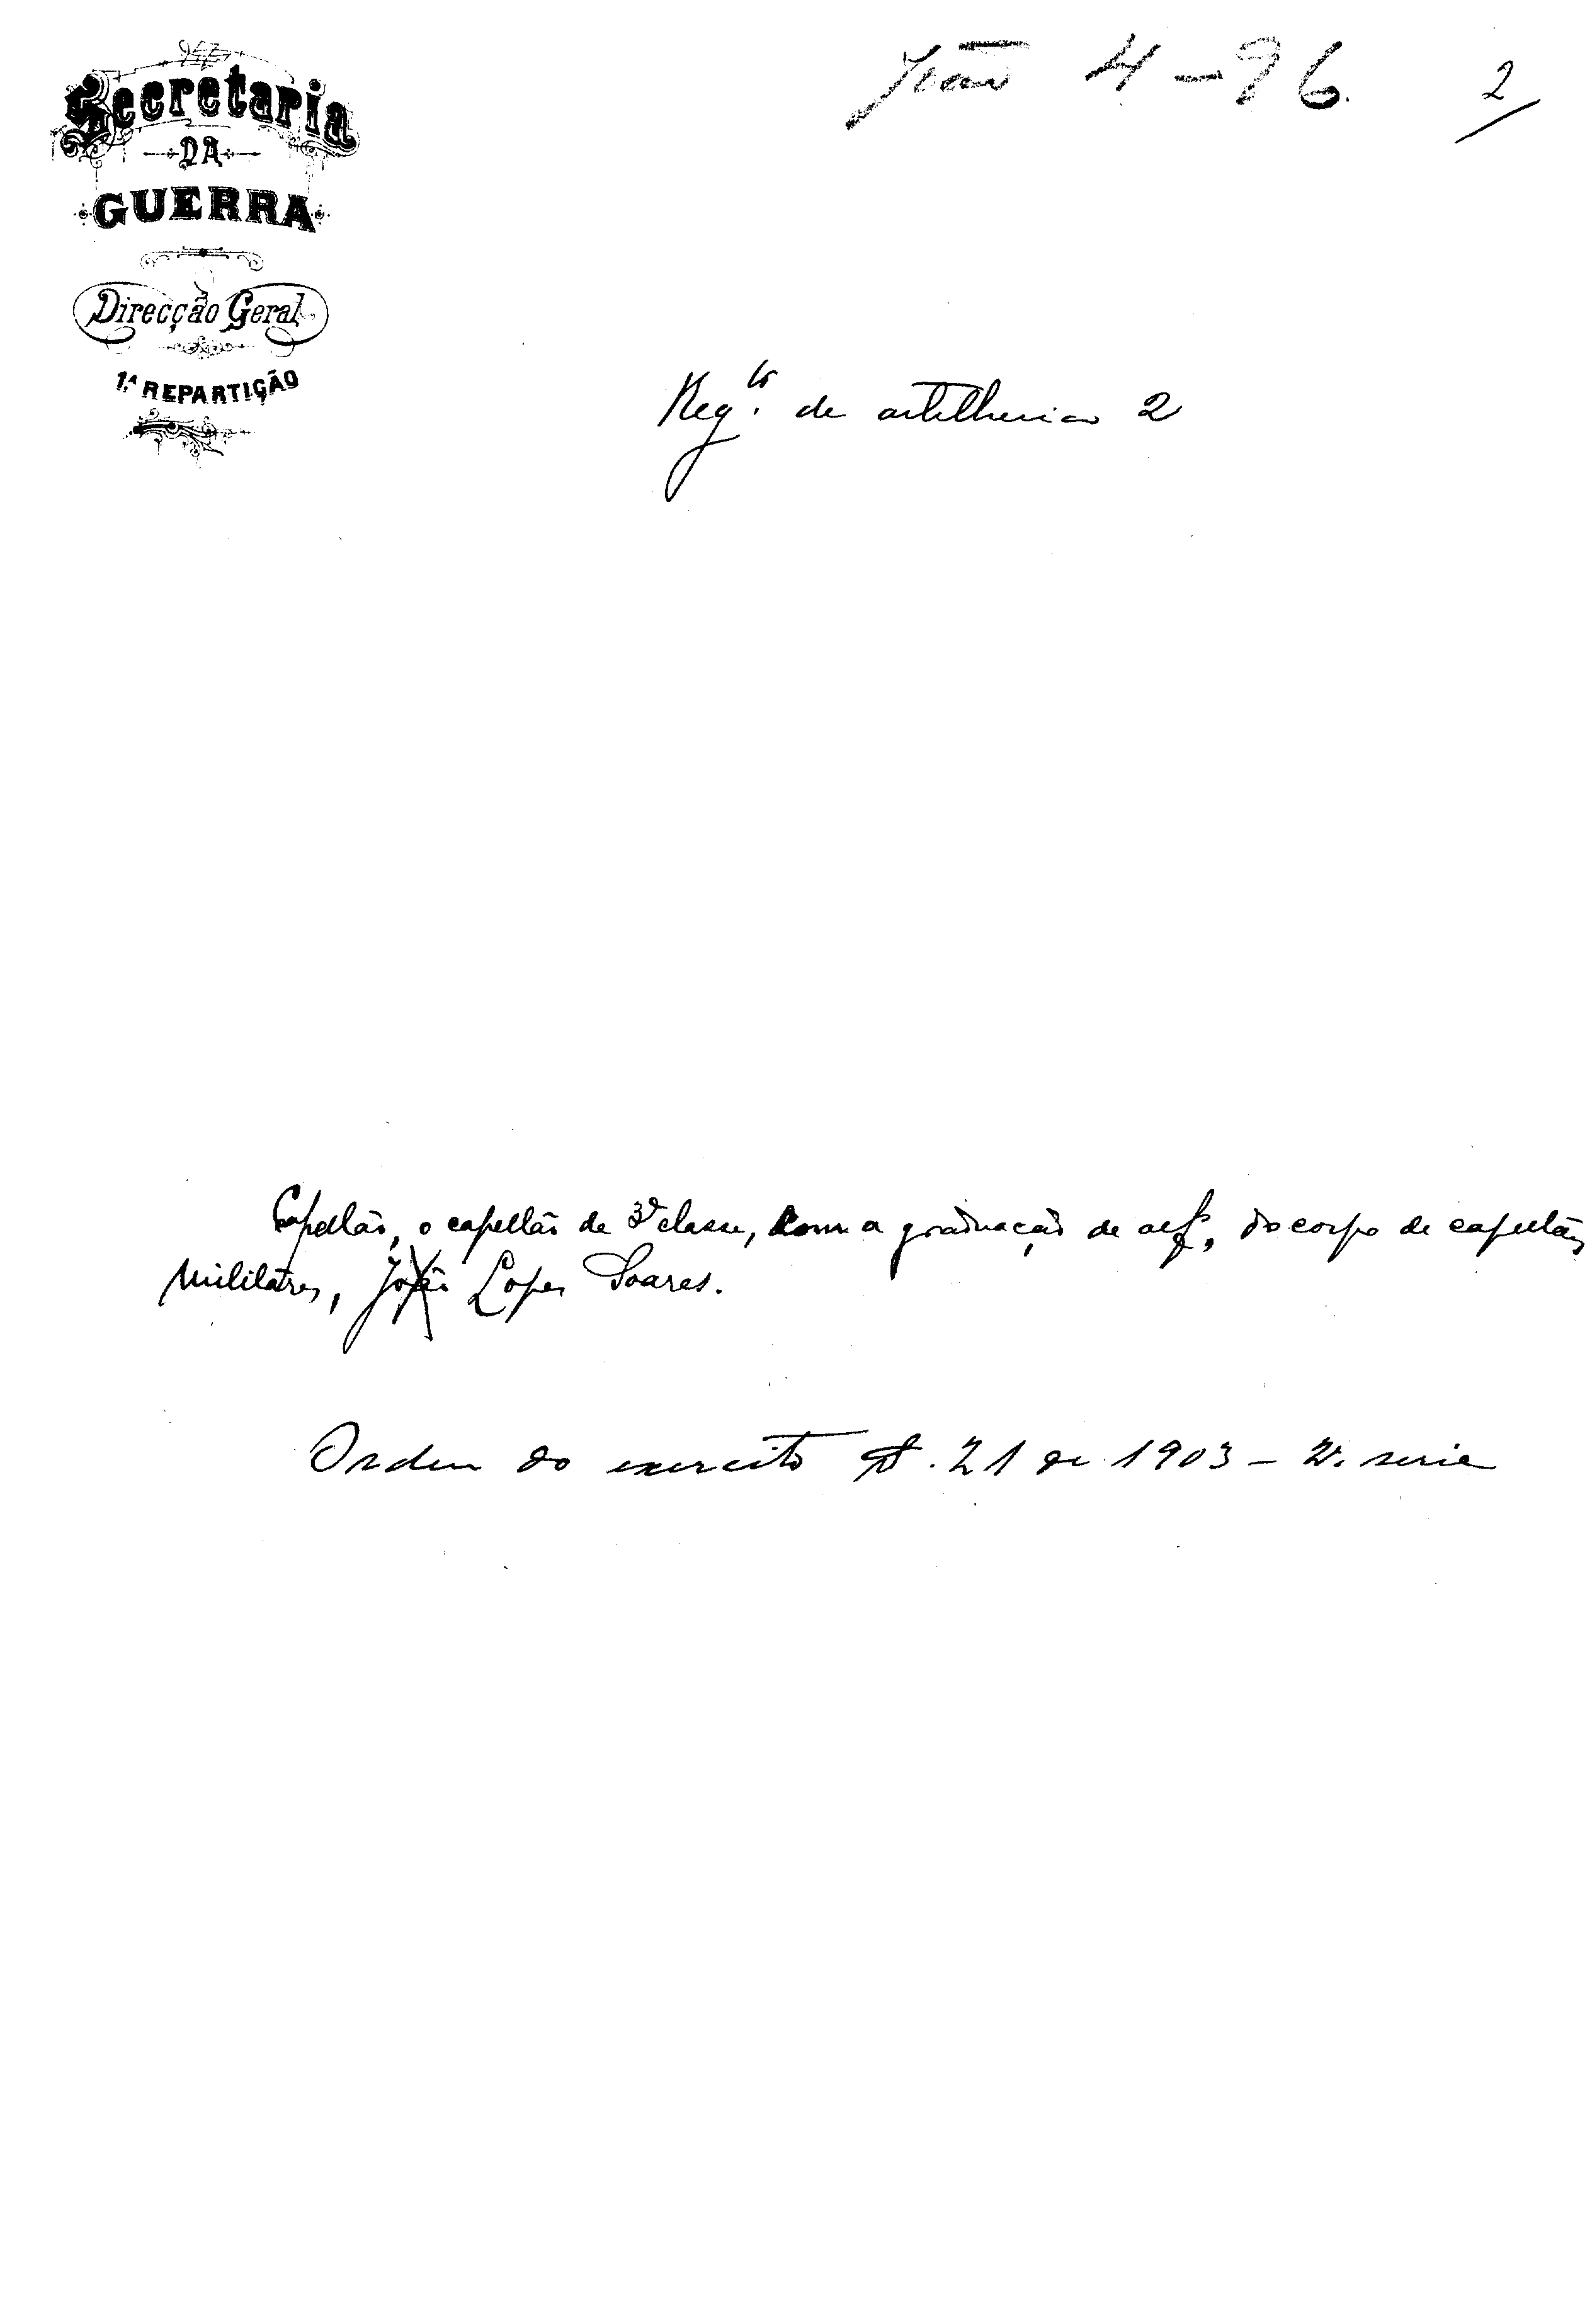 Secretaria
DA
GUERRA
Direcção Geral
1.ª REPARTIÇÃO
João 4-96. 2
Reg.to de artilheria 2
Capellão, o capellão de 3ª classe, com a graduação de alf.s, do corpo de capellães
militares, João Lopes Soares.
Ordem do exercito nº. 21 de 1903 - 2ª. serie